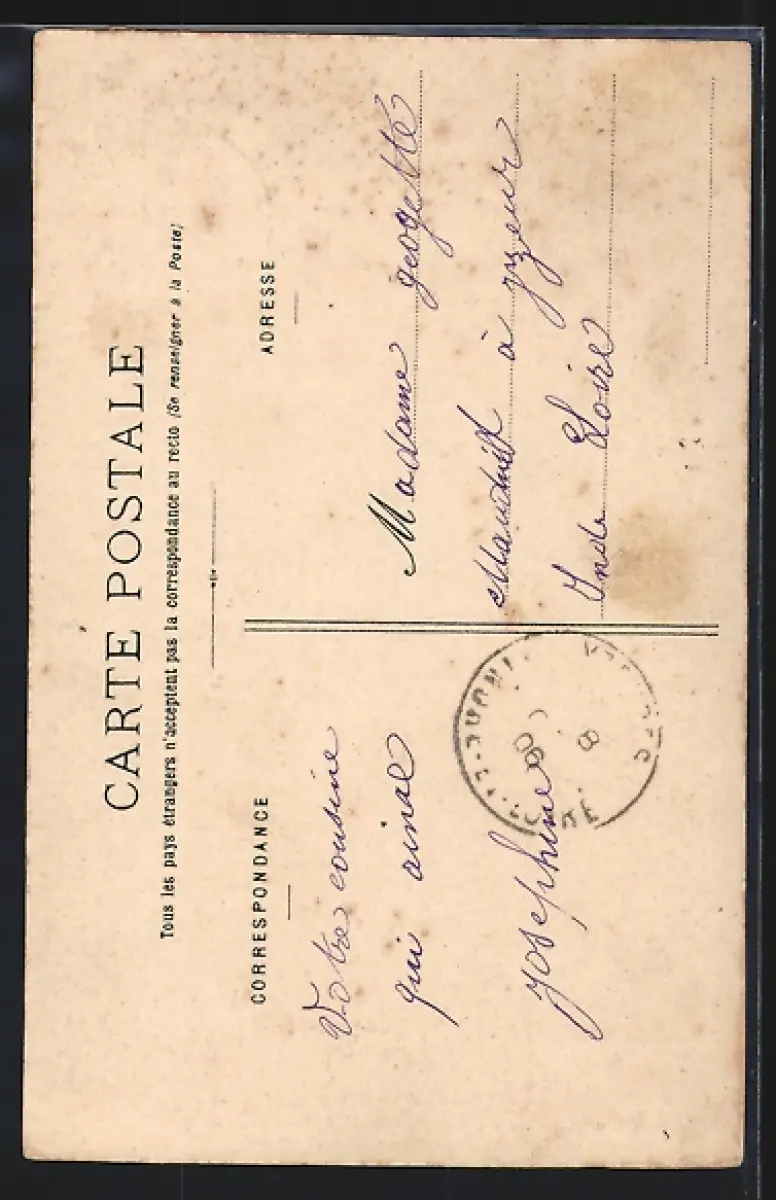 CARTE POSTALE
Tous les pays étrangers n'acceptent pas la correspondance au recto (Se renseigner à la Poste)
CORRESPONDANCE
Votre cousine
qui aimé
Josephine
ADRESSE
Madame geogette
à yzeur
Inde Loire